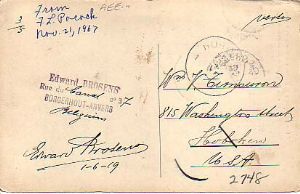 3/3
From
F L Pocock
Nov. 21, 1967
Edward BROSENS
Rue du Canal n° 37
BORGERHOUT-ANVERS
Belgium
Edward Brosens
1-6-19
815 Washington Street
Hoboken
U.S.A
2748